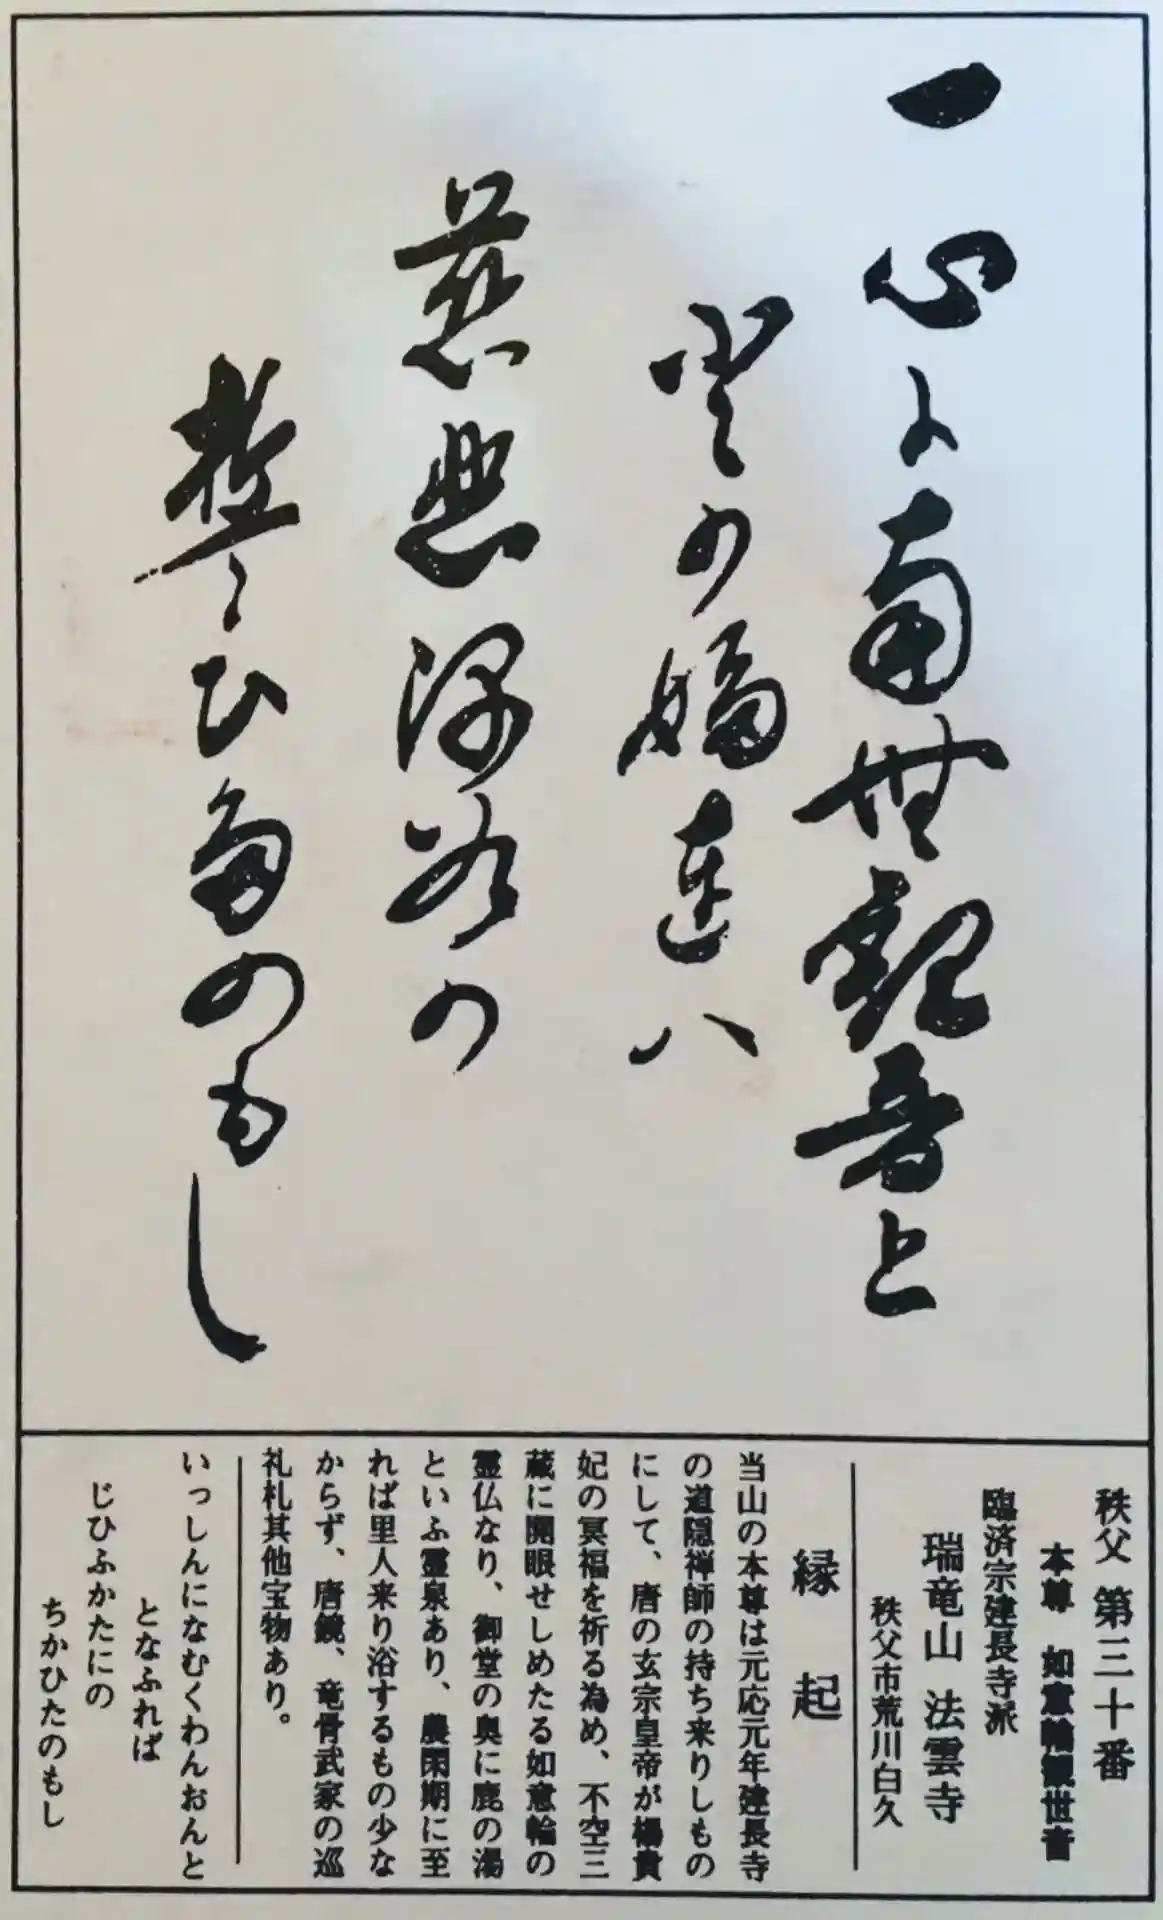 一心に南無観音と
登婦連ハ
慈悲深谷の
誓ひ多のもし
秩父 第三十番
本尊 如意輪観世音
臨済宗建長寺派
瑞竜山 法雲寺
秩父市荒川白久
縁起
当山の本尊は元応元年建長寺
の道隠禅師の持ち来りしもの
にして、唐の玄宗皇帝が楊貴
妃の冥福を祈る為め、不空三
蔵に開眼せしめたる如意輪の
霊仏なり、御堂の奥に鹿の湯
といふ霊泉あり、農閑期に至
れば里人来り浴するもの少な
からず、唐鏡、竜骨武家の巡
礼札其他宝物あり。
いっしんになむくわんおんと
となふれば
じひふかたにの
ちかひたのもし